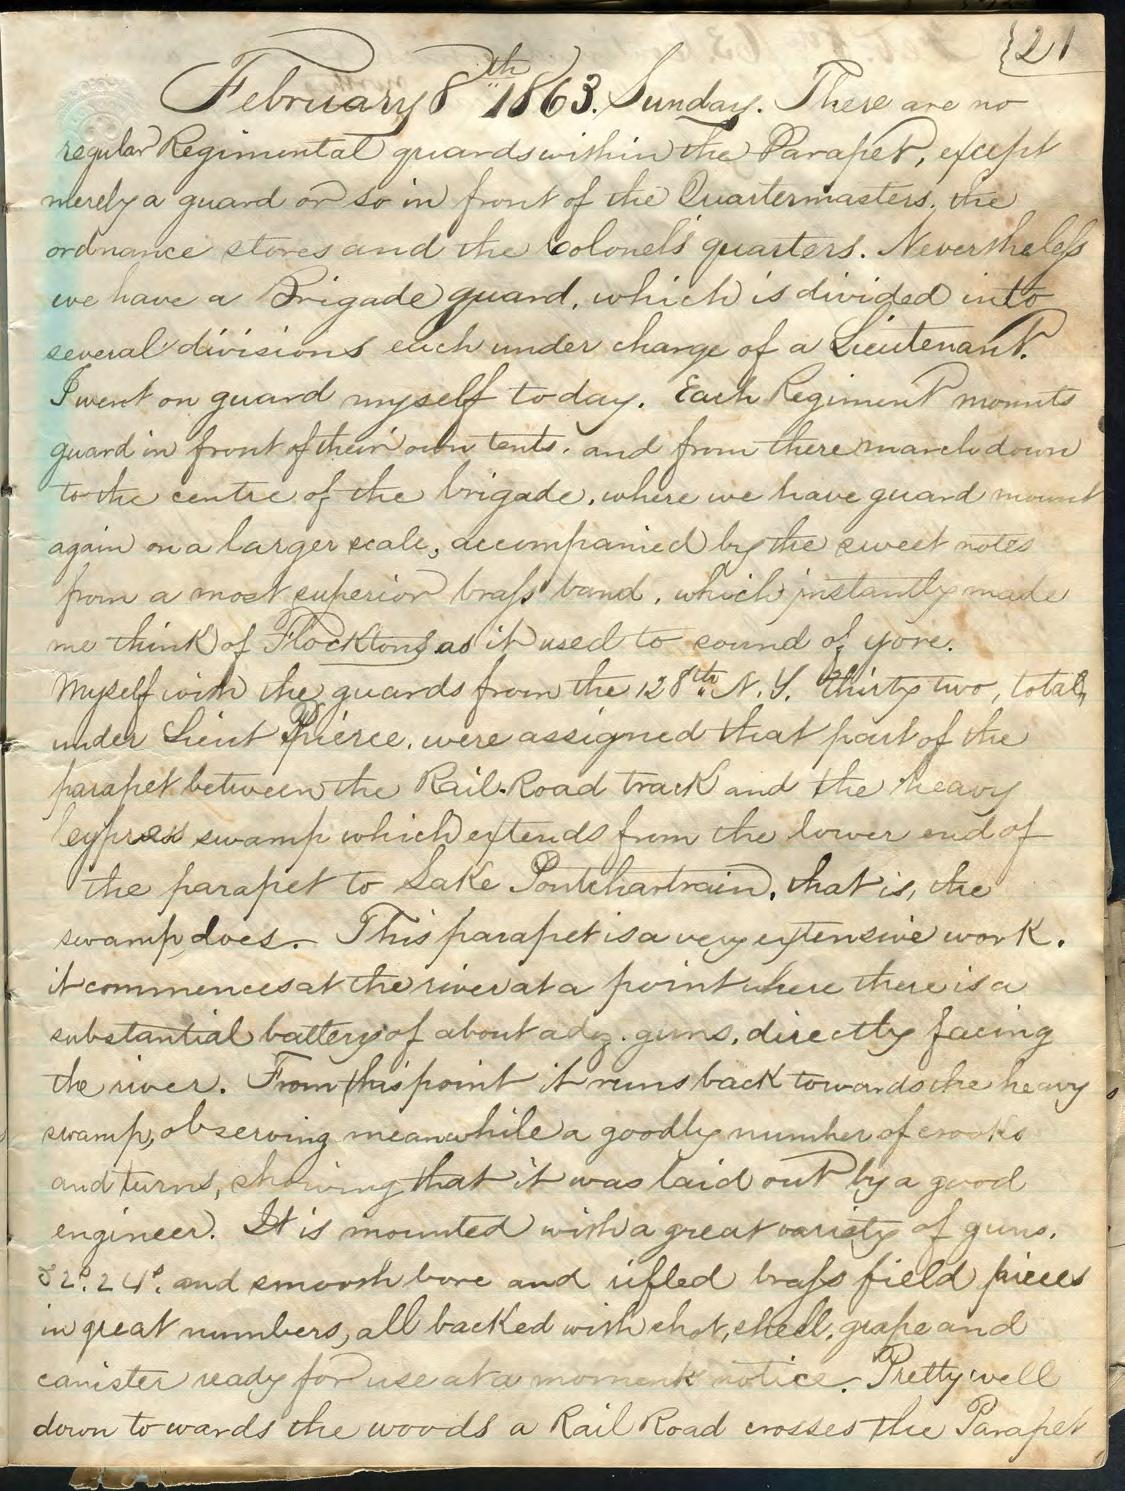 {21
February 8th 1863. Sunday. There are no
regular Regimental guards within the Parapet, except
merely a guard or so in front of the Quartermasters, the
ordnance stores and the Colonel's quarters. Nevertheless
we have a Brigade guard, which is divided into
several divisions each under charge of a Lieutenant.
I went on guard myself today. Each Regiment mounts
guard in front of their own tents, and from there march down
to the centre of the brigade, where we have guard mount
again on a larger scale, accompanied by the sweet notes
from a most superior brass band, which instantly made
me think of Flocktons as it used to sound of yore.
Myself with the guards from the 128th N.Y. thirty two, total,
under Lieut Pierce, were assigned that part of the
parapet between the Rail-Road track and the heavy
cypress swamp which extends from the lower end of
the parapet to Lake Pontchartrain, that is, the
swamp does. This parapet is a very extensive work.
it commences at the river at a point where there is a
substantial battery of about a dz. guns, directly facing
the river. From this point it runs back towards the heavy
swamp, observing meanwhile a goodly number of crooks
and turns, showing that it was laid out by a good
engineer. It is mounted with a great variety of guns.
32p. 24p. and smooth bore and rifled brass field pieces
in great numbers, all backed with shot, shell, grape and
canister ready for use at a moments notice. Pretty well
down towards the woods a Rail Road crosses the Parapet